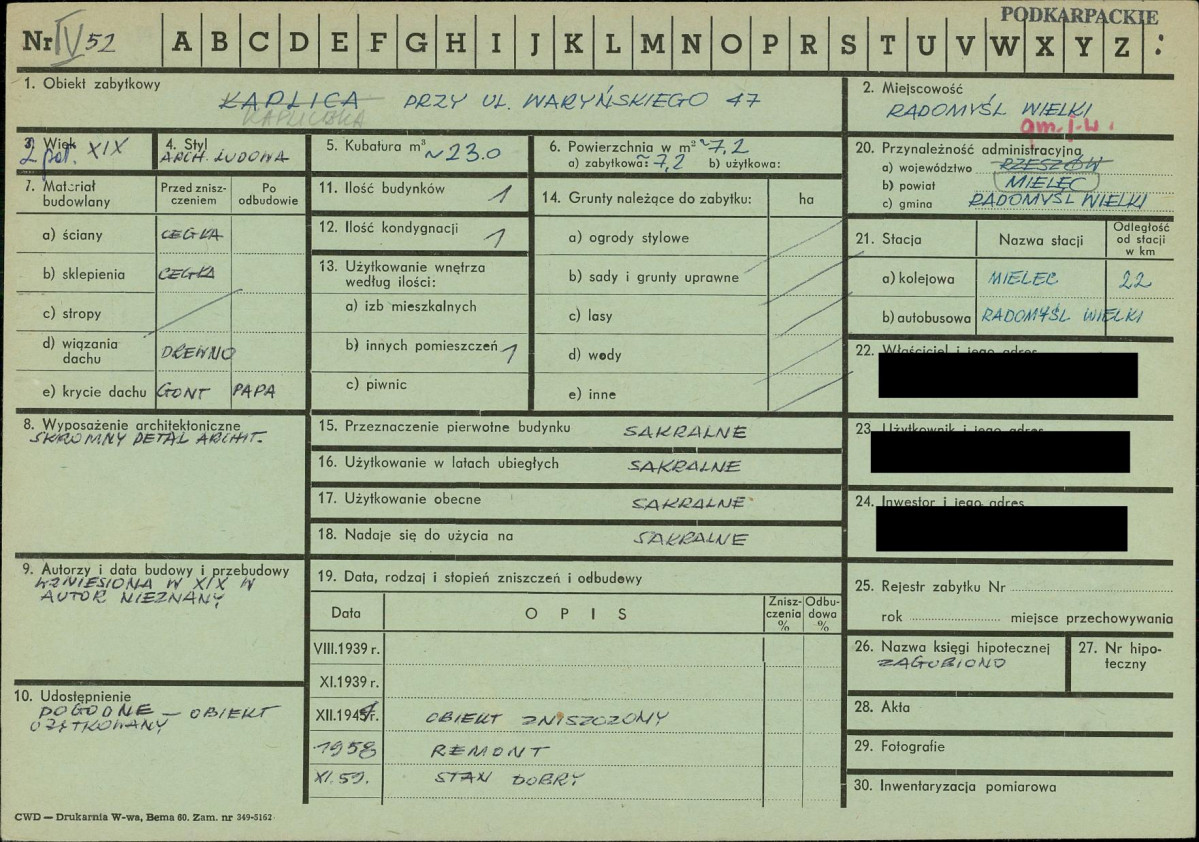 PODKARPACKIE
Nr IV 52 A B C D E F G H I J K L M N O P R S T U V W X Y Z :
1. Obiekt zabytkowy
KAPLICA PRZY UL. WARYŃSKIEGO 47
KAPLICZKA
2. Miejscowość
RADOMYŚL WIELKI
gm. j.w.
3. Wiek
2 poł. XIX
4. Styl
ARCH. LUDOWA
5. Kubatura m³ ~23.0
6. Powierzchnia w m² ~7,2
a) zabytkowa: ~7,2 b) użytkowa:
7. Materiał budowlany
Przed zniszczeniem
Po odbudowie
a) ściany CEGŁA
b) sklepienia CEGŁA
c) stropy
d) wiązania dachu DREWNO
e) krycie dachu GONT PAPA
8. Wyposażenie architektoniczne
SKROMNY DETAL ARCHIT.
9. Autorzy i data budowy i przebudowy
WZNIESIONA W XIX W
AUTOR NIEZNANY
10. Udostępnienie
DOGODNE – OBIEKT
UŻYTKOWANY
11. Ilość budynków 1
12. Ilość kondygnacji 1
13. Użytkowanie wnętrza
według ilości:
a) izb mieszkalnych
b) innych pomieszczeń 1
c) piwnic
14. Grunty należące do zabytku: ha
a) ogrody stylowe
b) sady i grunty uprawne
c) lasy
d) wody
e) inne
15. Przeznaczenie pierwotne budynku SAKRALNE
16. Użytkowanie w latach ubiegłych SAKRALNE
17. Użytkowanie obecne SAKRALNE
18. Nadaje się do użycia na SAKRALNE
19. Data, rodzaj i stopień zniszczeń i odbudowy
Data OPIS Zniszczenia % Odbudowa %
VIII.1939 r.
XI.1939 r.
XII.1945r. OBIEKT ZNISZCZONY
1958 REMONT
XI.59. STAN DOBRY
20. Przynależność administracyjna
a) województwo RZESZÓW
b) powiat MIELEC
c) gmina RADOMYŚL WIELKI
21. Stacja Nazwa stacji Odległość od stacji w km
a) kolejowa MIELEC 22
b) autobusowa RADOMYŚL WIELKI
22. Właściciel i jego adres
23. Użytkownik i jego adres
24. Inwestor i jego adres
25. Rejestr zabytku Nr
rok miejsce przechowywania
26. Nazwa księgi hipotecznej
ZAGUBIONO
27. Nr hipoteczny
28. Akta
29. Fotografie
30. Inwentaryzacja pomiarowa
CWD — Drukarnia W-wa, Bema 60. Zam. nr 349-5162